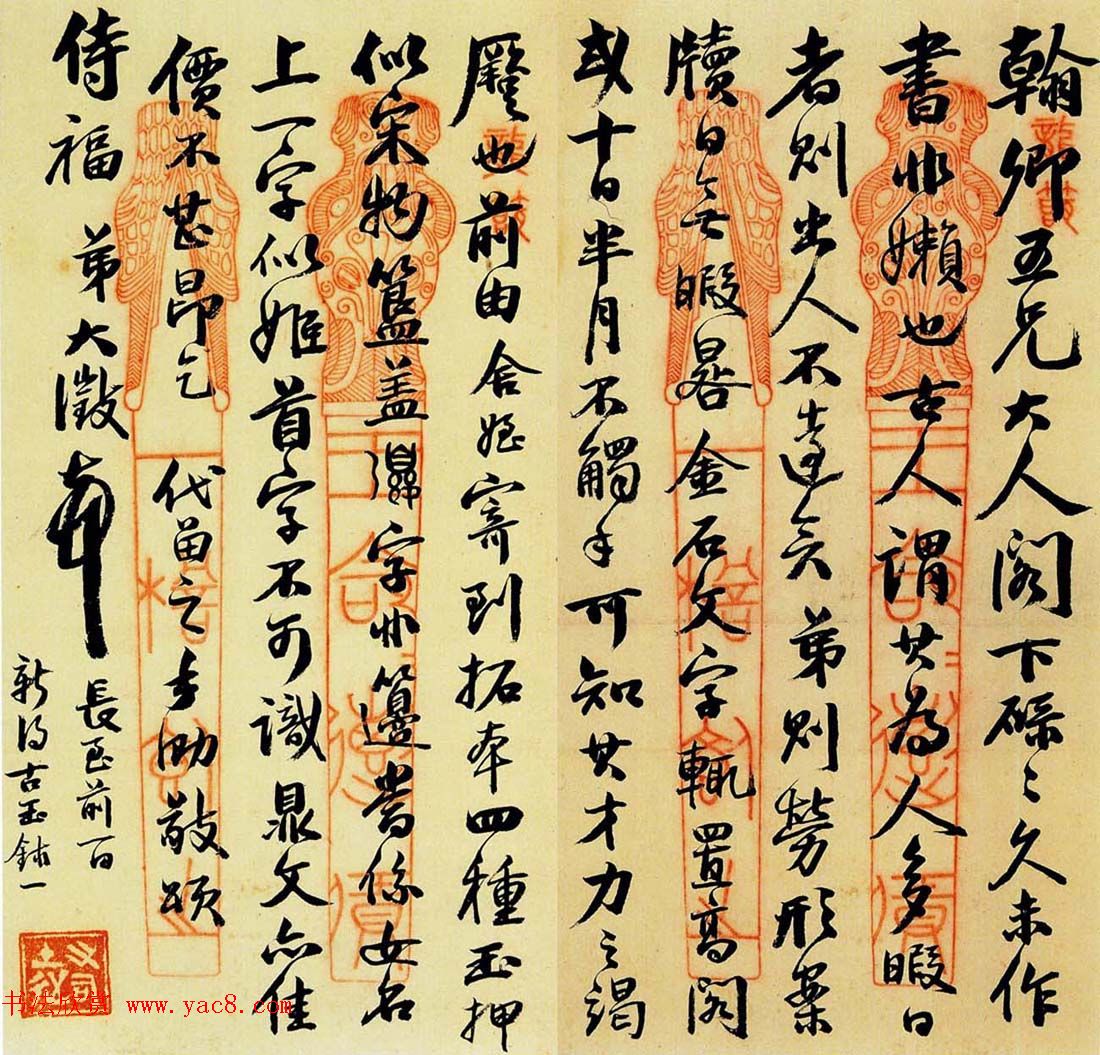 翰卿五兄大人閣下碌々久未作
書非嬾也古人謂其為人多暇日
者則出人不遠矣弟則勞形案
牘日無暇晷金石文字輒置高閣
或十日半月不觸手可知其才力之竭
蹷也前由舍姪寄到拓本四種玉押
似宋物簋蓋字非簋當係女名
上一字似姬首字不可識鼎文亦佳
價不甚昂乞代留之手泐敬頌
侍福弟大澂頓首
長至前一日
新得古玉鉥一
书法欣赏 www.yac8.com